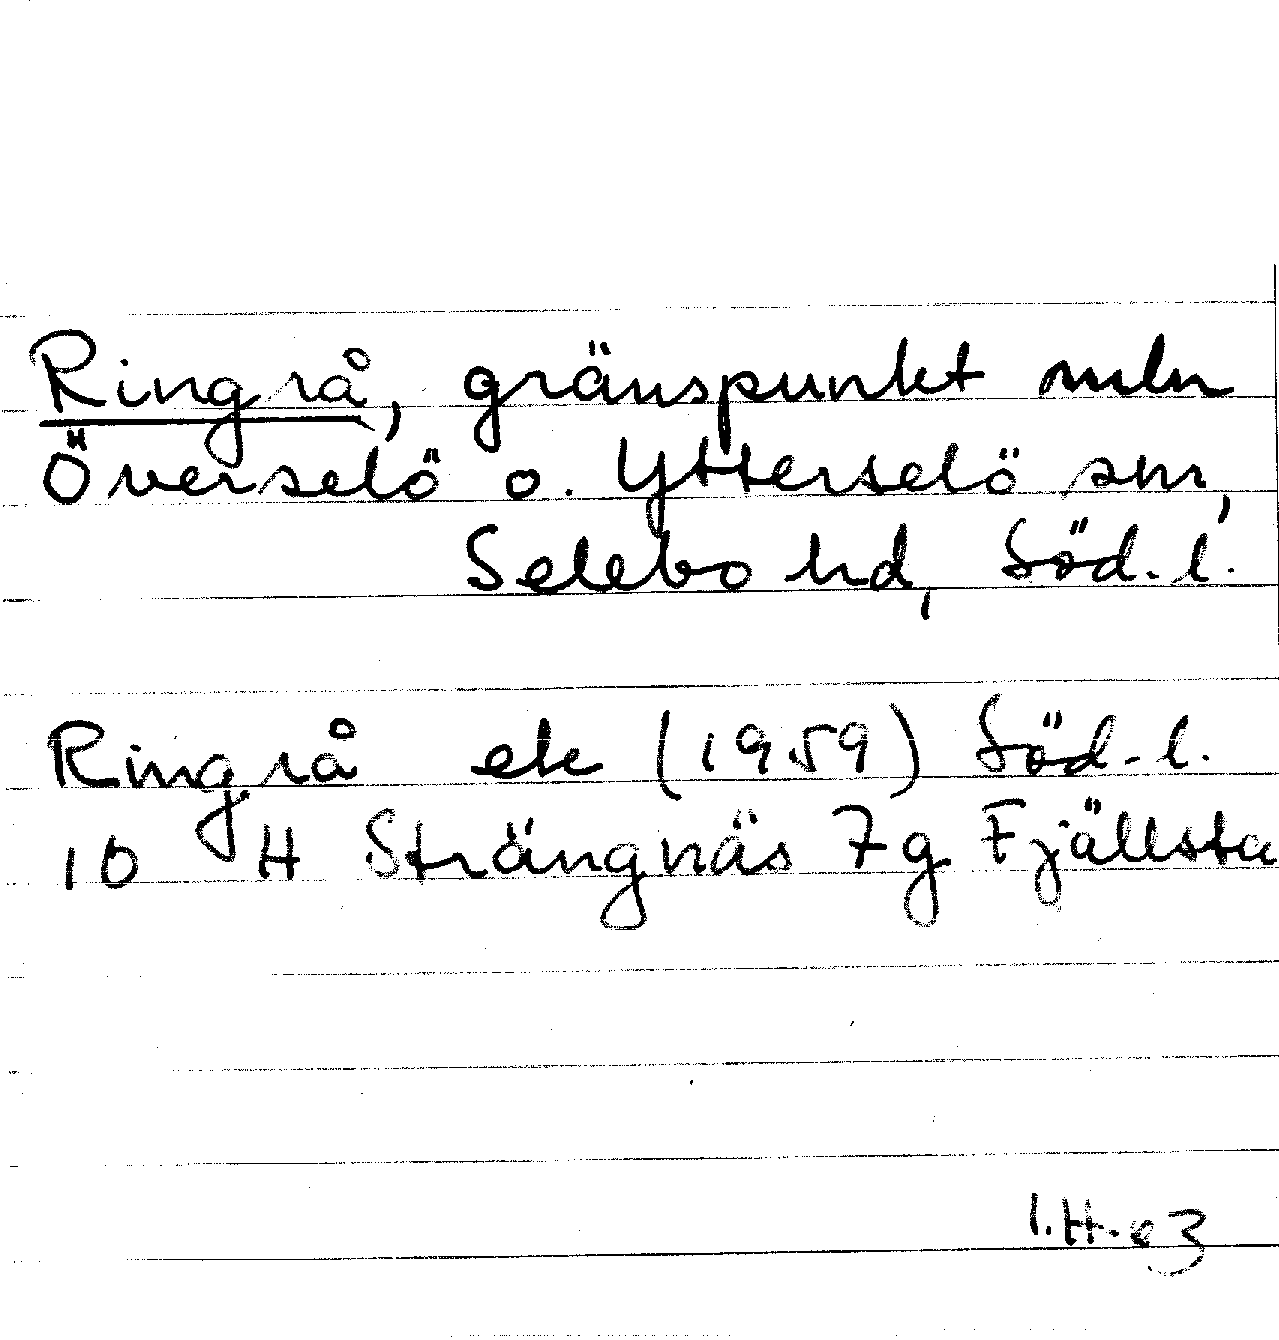 Ringrå, gränspunkt mln
Överselö o. Ytterselö snr,
Selebo hd, Söd. l.
Ringrå ek (1959) Söd. l.
10 H Strängnäs 7g Fjällsta
I.H. 83